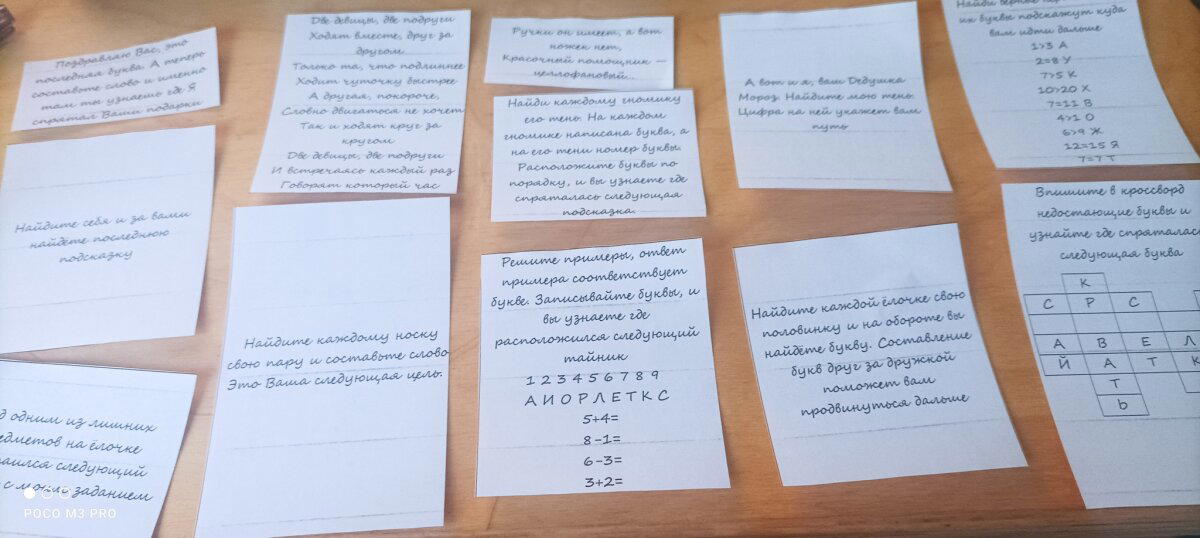 Поздравляю Вас, это
последняя буква. А теперь
составьте слово и именно
там ты узнаешь где Я
спрятал Ваши подарки
Две девицы, две подруги
Ходят вместе, друг за
другом
Только та, что подлиннее
Ходит чуточку быстрее
А другая, покороче,
Словно двигаться не хочет
Так и ходят круг за
кругом
Две девицы, две подруги
И встречаясь каждый раз
Говорят который час
Ручки он имеет, а вот
ножек нет,
Красочный помощник –
целлофановый...
Найди каждому гномику
его тень. На каждом
гномике написана буква, а
на его тени номер буквы.
Расположите буквы по
порядку, и вы узнаете где
спряталась следующая
подсказка.
А вот и я, ваш Дедушка
Мороз. Найдите мою тень.
Цифра на ней укажет вам
путь
Найди верные
их буквы подскажут куда
вам идти дальше
1>3 А
2=8 У
7>5 К
10>20 Х
7=11 В
4>1 О
6>9 Ж
12=15 Я
7=7 Т
Найдите себя и за вами
найдёте последнюю
подсказку
Найдите каждому носку
свою пару и составьте слово
Это Ваша следующая цель.
Решите примеры, ответ
примера соответствует
букве. Записывайте буквы, и
вы узнаете где
расположился следующий
тайник
1 2 3 4 5 6 7 8 9
А И О Р Л Е Т К С
5+4=
8-1=
6-3=
3+2=
Найдите каждой ёлочке свою
половинку и на обороте вы
найдёте букву. Составление
букв друг за дружкой
поможет вам
продвинуться дальше
Впишите в кроссворд
недостающие буквы и
узнайте где спряталась
следующая буква
К
С Р С
А В Е Л
Й А Т К
Т
Ь
одним из лишних
на ёлочке
следующий
с моим заданием
POCO M3 PRO